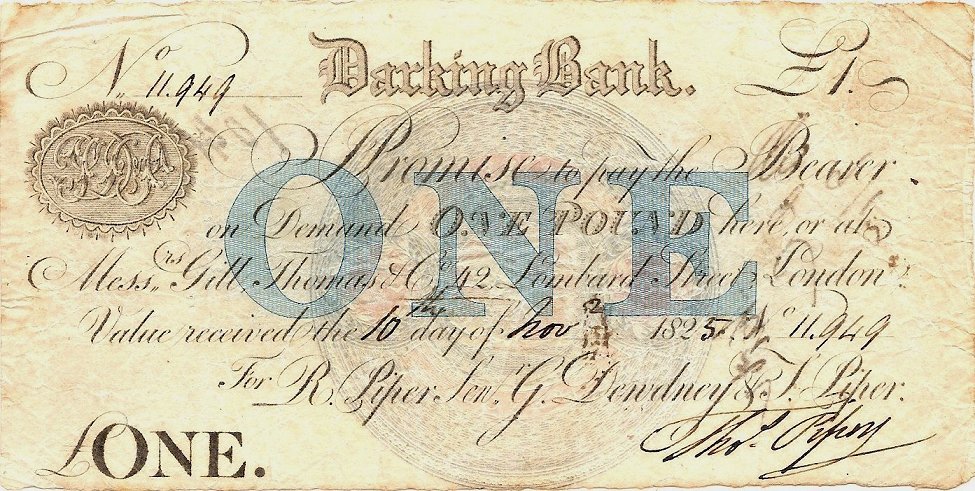 No 11.949
Darking Bank.
£1.
I Promise to pay the Bearer
on Demand ONE POUND here, or at
Messrs Gill Thomas & Co 42 Lombard Street London
Value received the 10th day of Nov 1825 No 11.949
For R. Piper Senr G. Dewdney & T. Piper.
£ONE.
Thos. Piper
ONE